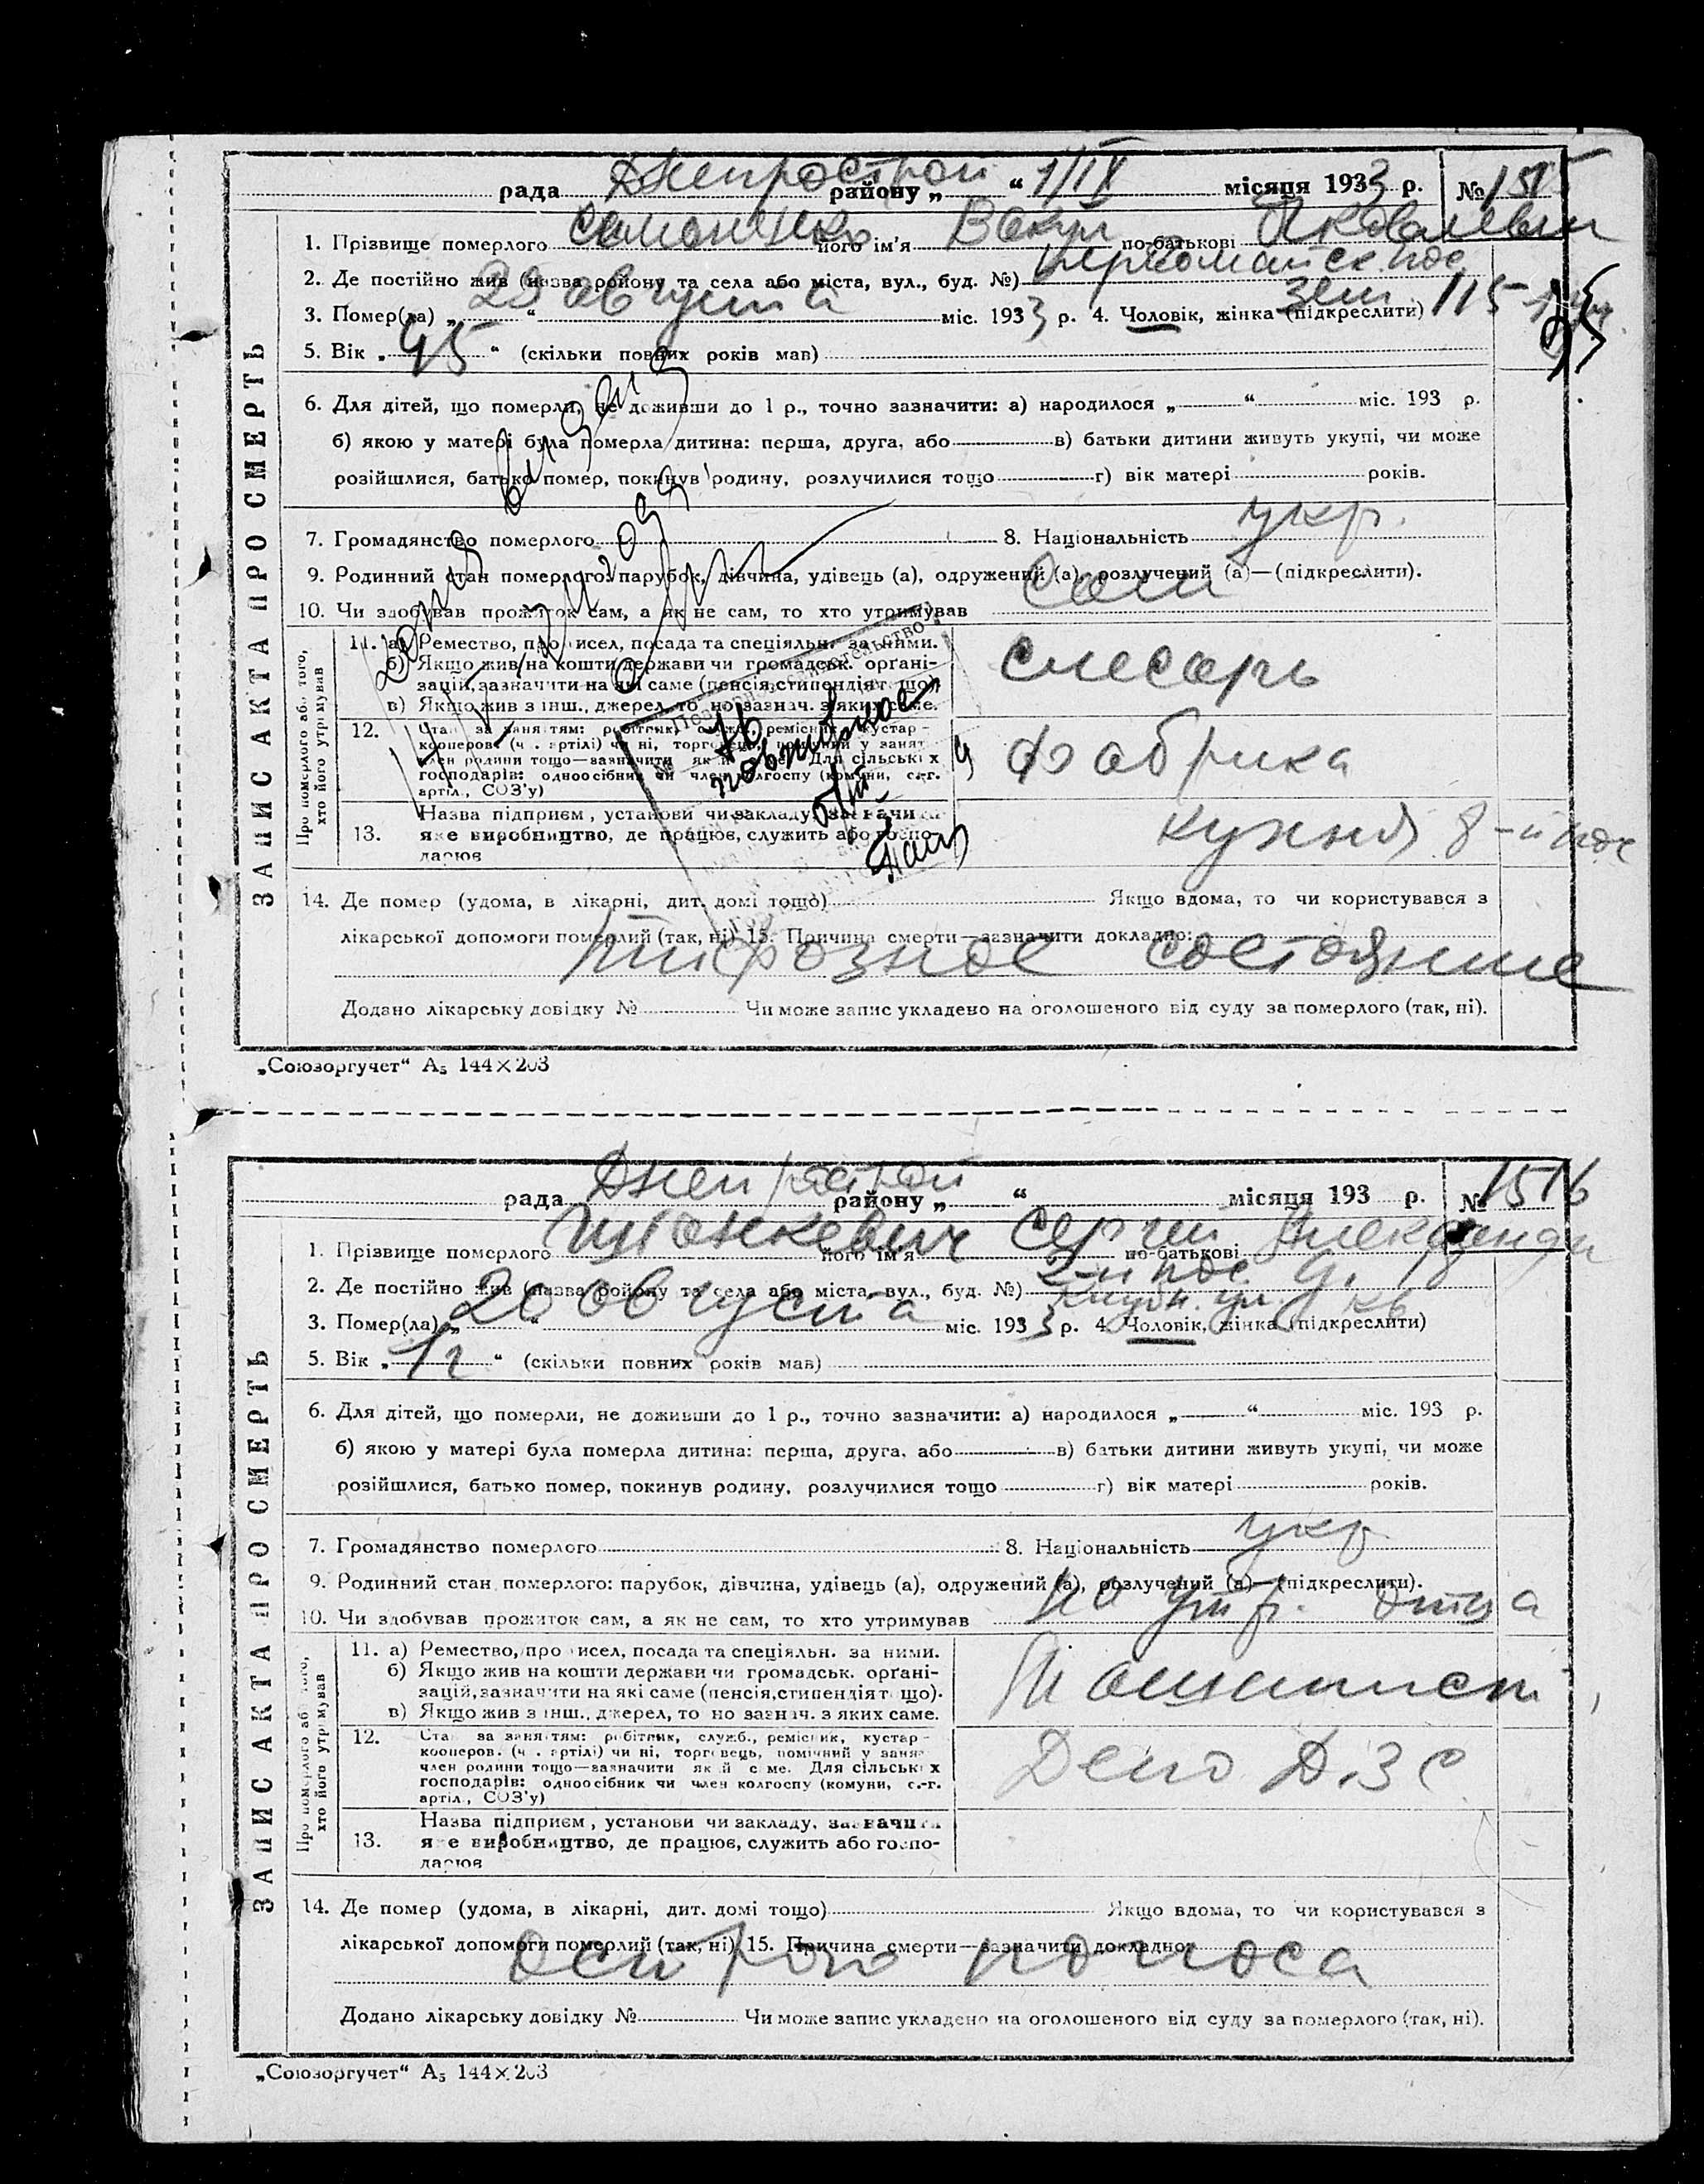 Днепрострой
рада районy „ “ 1/IX місяця 1933 р. № 1515
1. Прізвище померлого його ім'я по-батькові Яковлевич
2. Де постійно жив (назва району та села або міста, вул., буд. №) Первомайск. пос.
зем. 115
3. Помер(ла) „ 29 “ августа міс. 1933 р. 4. Чоловік, жінка (підкреслити)
5. Вік „ 45 “ (скільки повних років мав)
6. Для дітей, що померли, не доживши до 1 р., точно зазначити: а) народилося „ “ міс. 193 р.
б) якою у матері була померла дитина: перша, друга, або в) батьки дитини живуть укупі, чи може
розійшлися, батько помер, покинув родину, розлучилися тощо г) вік матері років.
7. Громадянство померлого 8. Національність укр.
9. Родинний стан померлого: парубок, дівчина, удівець (а), одружений (а), розлучений (а)—(підкреслити).
10. Чи здобував прожиток сам, а як не сам, то хто утримував Сам
ЗАПИС АКТА ПРО СМЕРТЬ
Про померлого або того, хто його утримував
11. а) Ремество, промисел, посада та спеціяльн. за ними.
б) Якщо жив на кошти держави чи громадськ. орґані-
зацій, зазначити на які саме (пенсія, стипендіят тощо).
в) Якщо жив з інш., джерел, то но зазнач. з яких саме.
слесарь
12. Стан за заняттям: робітник, служб., ремісник, кустар-
кооперов. (ч. артілі) чи ні, торговець, помічний у занят.
член родини тощо—зазначити який саме. Для сільських
господарів: одноосібник чи член колгоспу (комуни, с.-г.
артіл., СОЗ'у)
фабрика
13. Назва підприєм., установи чи закладу, зазначити
яке виробництво, де працює, служить або госпо-
дарює
кухня 8-й пос
14. Де помер (удома, в лікарні, дит. домі тощо) Якщо вдома, то чи користувався з
лікарської допомоги померлий (так, ні) 15. Причина смерти—зазначити докладно:
тифозное состояние
Додано лікарську довідку № Чи може запис укладено на оголошеного від суду за померлого (так, ні).
„Союзоргучет“ А₅ 144×203
Днепрострой
рада району „ “ місяця 193 р. № 1516
1. Прізвище померлого його ім'я Сергей по-батькові Александр
2. Де постійно жив (назва району та села або міста, вул., буд. №) 2-й пос. д. 18
Клубн. ул. кв
3. Помер(ла) „ 20 “ августа міс. 1933 р. 4. Чоловік, жінка (підкреслити)
5. Вік „ 1 г “ (скільки повних років мав)
6. Для дітей, що померли, не доживши до 1 р., точно зазначити: а) народилося „ “ міс. 193 р.
б) якою у матері була померла дитина: перша, друга, або в) батьки дитини живуть укупі, чи може
розійшлися, батько помер, покинув родину, розлучилися тощо г) вік матері років.
7. Громадянство померлого 8. Національність укр.
9. Родинний стан померлого: парубок, дівчина, удівець (а), одружений (а), розлучений (а)—(підкреслити).
10. Чи здобував прожиток сам, а як не сам, то хто утримував на утр. отца
ЗАПИС АКТА ПРО СМЕРТЬ
Про померлого або того, хто його утримував
11. а) Ремество, промисел, посада та спеціяльн. за ними.
б) Якщо жив на кошти держави чи громадськ. орґані-
зацій, зазначити на які саме (пенсія, стипендіят тощо).
в) Якщо жив з інш., джерел, то но зазнач. з яких саме.
Машинист
12. Стан за заняттям: робітник, служб., ремісник, кустар-
кооперов. (ч. артілі) чи ні, торговець, помічний у занят.
член родини тощо—зазначити який саме. Для сільських
господарів: одноосібник чи член колгоспу (комуни, с.-г.
артіл., СОЗ'у)
Депо Д.З С.
13. Назва підприєм., установи чи закладу, зазначити
яке виробництво, де працює, служить або госпо-
дарює
14. Де помер (удома, в лікарні, дит. домі тощо) Якщо вдома, то чи користувався з
лікарської допомоги померлий (так, ні) 15. Причина смерти—зазначити докладно:
острого поноса
Додано лікарську довідку № Чи може запис укладено на оголошеного від суду за померлого (так, ні).
„Союзоргучет“ А₅ 144×203